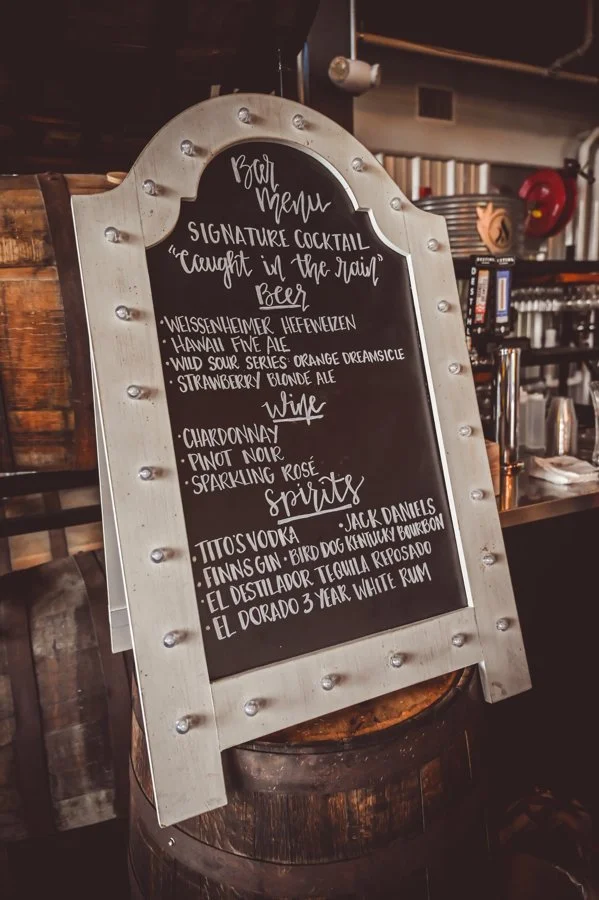 Bar
Menu
SIGNATURE COCKTAIL
"Caught in the rain"
Beer
·WEISSENHEIMER HEFEWEIZEN
·HAWAII FIVE ALE
·WILD SOUR SERIES: ORANGE DREAMSICLE
·STRAWBERRY BLONDE ALE
Wine
·CHARDONNAY
·PINOT NOIR
·SPARKLING ROSÉ
Spirits
·TITO'S VODKA ·JACK DANIELS
·FINNS GIN ·BIRD DOG KENTUCKY BOURBON
·EL DESTILADOR TEQUILA REPOSADO
·EL DORADO 3 YEAR WHITE RUM